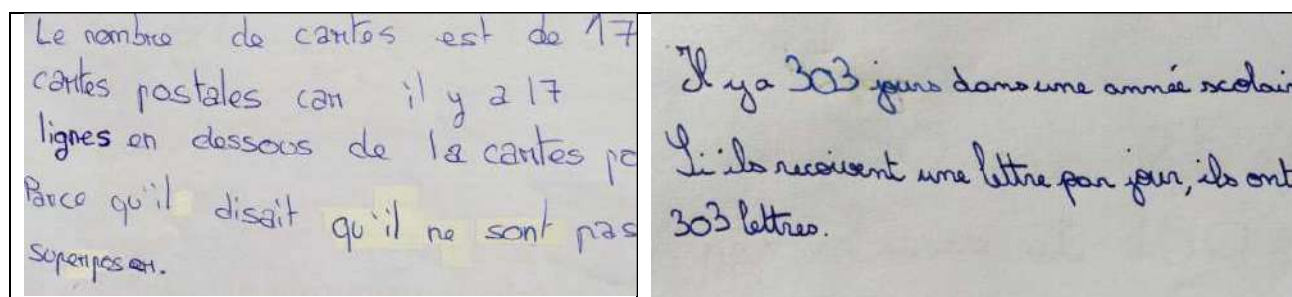 Le nombre de cartes est de 17
cartes postales car il y a 17
lignes en dessous de la cartes po
Parce qu'il disait qu'il ne sont pas
superposer.
Il y a 303 jours dans une année scolair
Si ils recoivent une lettre par jour, ils ont
303 lettres.